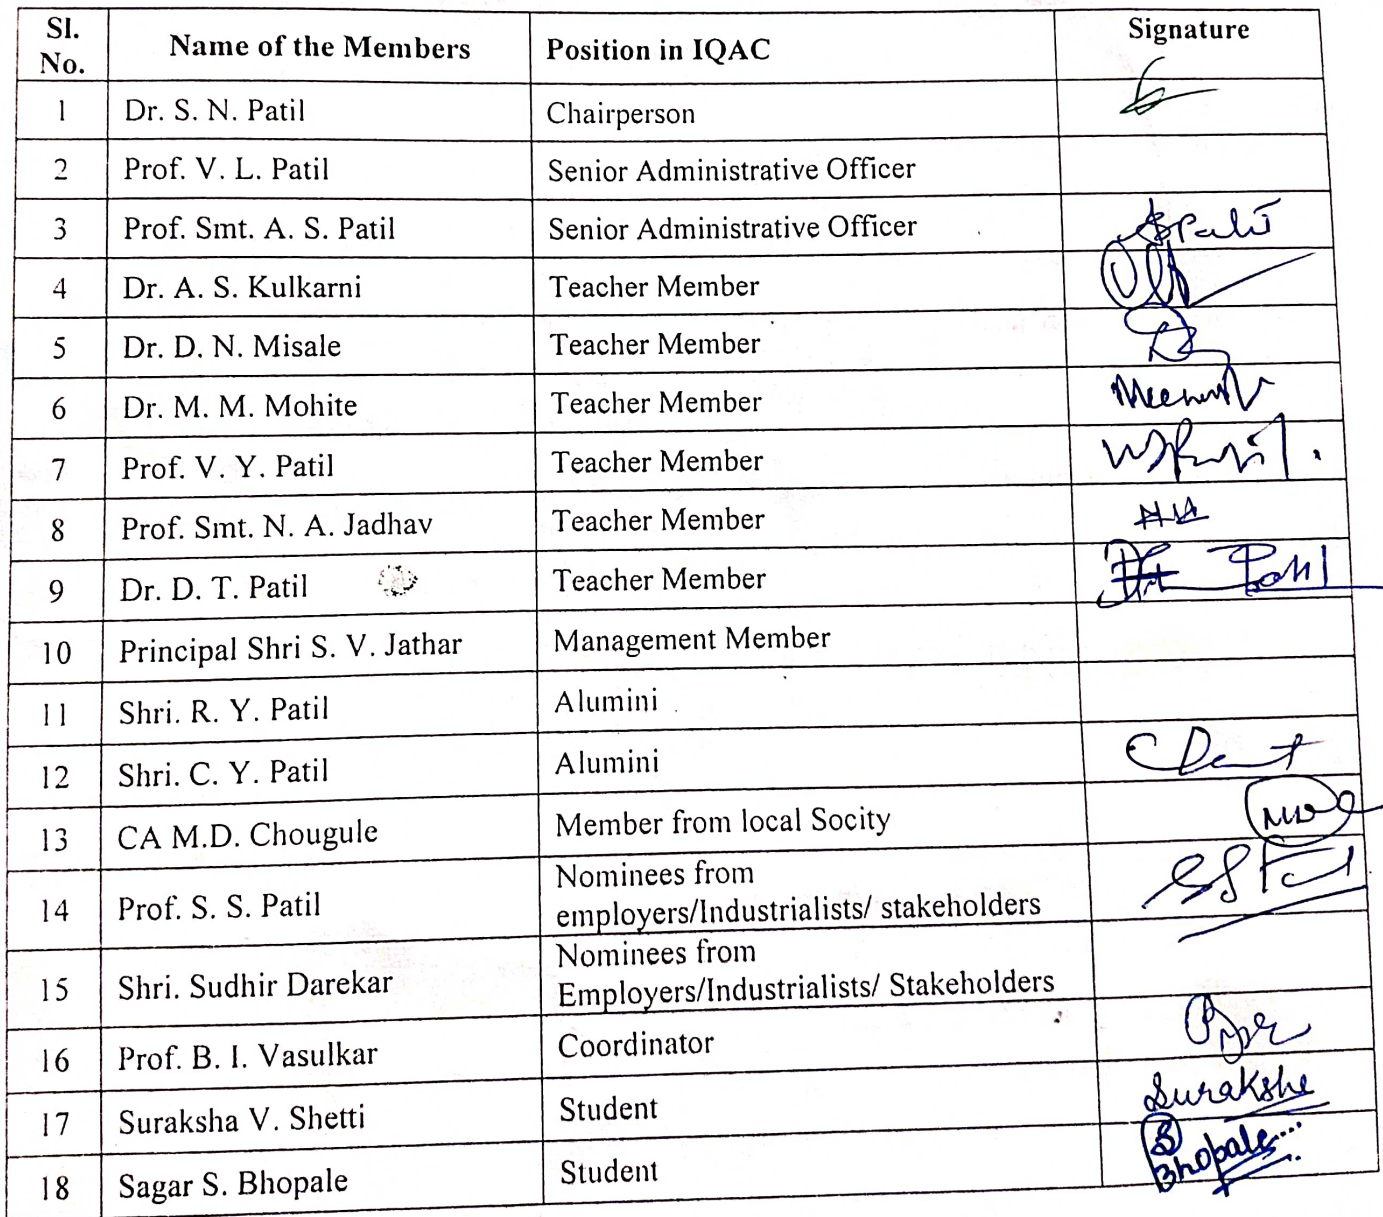 Sl. No. Name of the Members Position in IQAC Signature
1 Dr. S. N. Patil Chairperson
2 Prof. V. L. Patil Senior Administrative Officer
3 Prof. Smt. A. S. Patil Senior Administrative Officer
4 Dr. A. S. Kulkarni Teacher Member
5 Dr. D. N. Misale Teacher Member
6 Dr. M. M. Mohite Teacher Member
7 Prof. V. Y. Patil Teacher Member
8 Prof. Smt. N. A. Jadhav Teacher Member
9 Dr. D. T. Patil Teacher Member
10 Principal Shri S. V. Jathar Management Member
11 Shri. R. Y. Patil Alumini
12 Shri. C. Y. Patil Alumini
13 CA M.D. Chougule Member from local Socity
14 Prof. S. S. Patil Nominees from
employers/Industrialists/ stakeholders
15 Shri. Sudhir Darekar Nominees from
Employers/Industrialists/ Stakeholders
16 Prof. B. I. Vasulkar Coordinator
17 Suraksha V. Shetti Student Surakshe
18 Sagar S. Bhopale Student Bhopale